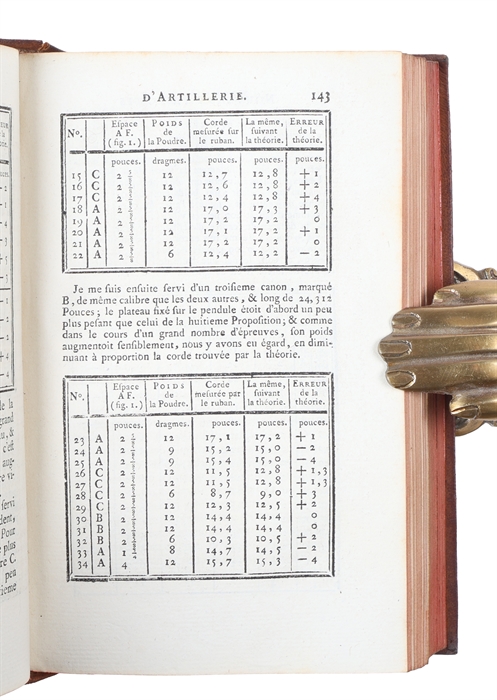 D'ARTILLERIE. 143
Nº. Espace A F. (fig. 1.) POIDS de la Poudre. Corde mesurée sur le ruban. La même, suivant la théorie. ERREUR de la théorie.
pouces. dragmes. pouces. pouces. pouces.
15 C 2 12 12,7 12,8 + 1
16 C 2 12 12,6 12,8 + 2
17 C 2 12 12,4 12,8 + 4
18 A 2 12 17,0 17,3 + 3
19 A 2 12 17,2 17,2 0
20 A 2 12 17,1 17,2 + 1
21 A 2 12 17,2 17,2 0
22 A 2 6 12,4 12,2 — 2
Je me suis ensuite servi d'un troisieme canon, marqué
B, de même calibre que les deux autres, & long de 24,312
Pouces; le plateau fixé sur le pendule étoit d'abord un peu
plus pesant que celui de la huitieme Proposition; & comme
dans le cours d'un grand nombre d'épreuves, son poids
augmentoit sensiblement, nous y avons eu égard, en dimi-
nuant à proportion la corde trouvée par la théorie.
Nº. Espace A F. (fig. 1.) POIDS de la Poudre. Corde mesurée par le ruban. La même, suivant la théorie. ERREUR de la théorie.
pouces. dragmes. pouces. pouces. pouces.
23 A 2 12 17,1 17,2 + 1
24 A 2 9 15,2 15,0 — 2
25 A 2 9 15,4 15,0 — 4
26 C 2 12 11,5 12,8 + 1,3
27 C 2 12 11,5 12,8 + 1,3
28 C 2 6 8,7 9,0 + 3
29 C 2 12 12,3 12,5 + 2
30 B 2 12 14,4 14,4 0
31 B 2 12 14,4 14,4 0
32 B 2 6 10,3 10,5 + 2
33 A 1 8 14,7 14,5 — 2
34 A 4 12 15,7 15,3 — 4